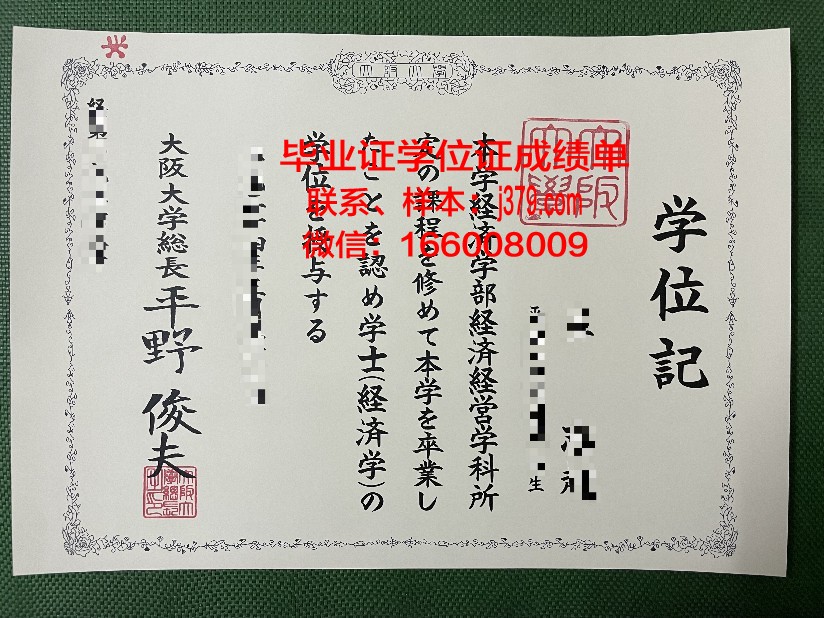 学位記
生
本学経済学部経済経営学科所
定の課程を修めて本学を卒業し
たことを認め学士(経済学)の
学位を授与する
大阪大学総長 平野俊夫
毕业证学位证成绩单
联系、样本：j379.com
微信：166008009